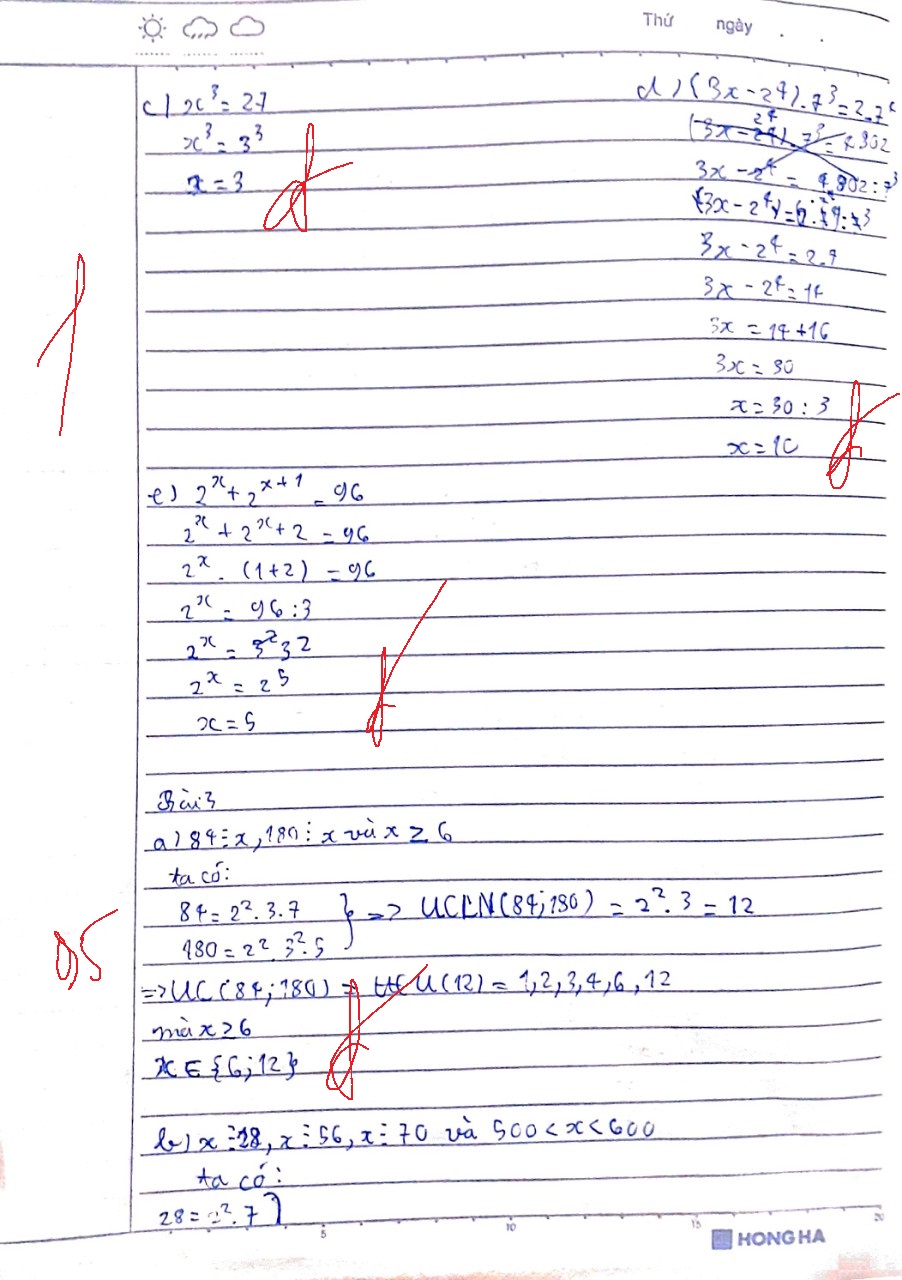 Thứ ngày . .
c) x³ = 27
x³ = 3³
x = 3
d) (3x - 2⁴) . 7³ = 2.7⁴
(3x - 2⁴) . 7³ = 4.802
3x - 2⁴ = 4.802 : 7³
3x - 2⁴ = 2.7
3x - 2⁴ = 14
3x = 14 + 16
3x = 30
x = 30 : 3
x = 10
1
e) 2ˣ + 2ˣ⁺¹ = 96
2ˣ + 2ˣ + 2 = 96
2ˣ . (1+2) = 96
2ˣ = 96 : 3
2ˣ = 32
2ˣ = 2⁵
x = 5
Bài 3
a) 84 ⋮ x, 180 ⋮ x và x ≥ 6
ta có:
84 = 2² . 3 . 7
180 = 2² . 3² . 5
} => UCLN(84; 180) = 2² . 3 = 12
0,5
=> UC(84; 180) = U(12) = 1, 2, 3, 4, 6, 12
mà x ≥ 6
x ∈ {6; 12}
b) x ⋮ 28, x ⋮ 56, x ⋮ 70 và 500 < x < 600
ta có:
28 = 2² . 7 }
5 10 15 20
HONG HA